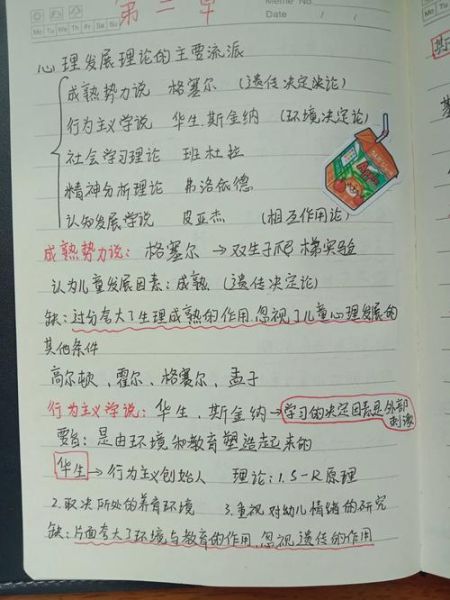 第二章
Memo No.
Date / /
Mo Tu We Th Fr Sa Su
心理发展理论的主要流派
成熟势力说 格塞尔 (遗传决定论)
行为主义学说 华生.斯金纳 (环境决定论)
社会学习理论 班杜拉
精神分析理论 弗洛依德
认知发展学说 皮亚杰 (相互作用论)
成熟势力说: 格塞尔 → 双生子爬梯实验
认为儿童发展因素:成熟 (遗传决定论)
缺:过分夸大了生理成熟的作用.忽视了儿童心理发展的
其他条件
高尔顿、霍尔、格塞尔、孟子
行为主义学说: 华生、斯金纳→学习的决定因素是外部
刺激
要旨:是由环境和教育塑造起来的
华生→行为主义创始人 理论:1.S-R原理
2.取决所处的养育环境 3.重视对幼儿情绪的研究
缺:片面夸大了环境与教育的作用.忽视遗传的作用